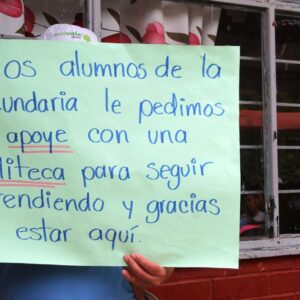 os alumnos de la
cundaria le pedimos
apoye con una
lioteca para seguir
rendiendo y gracias
estar aquí.